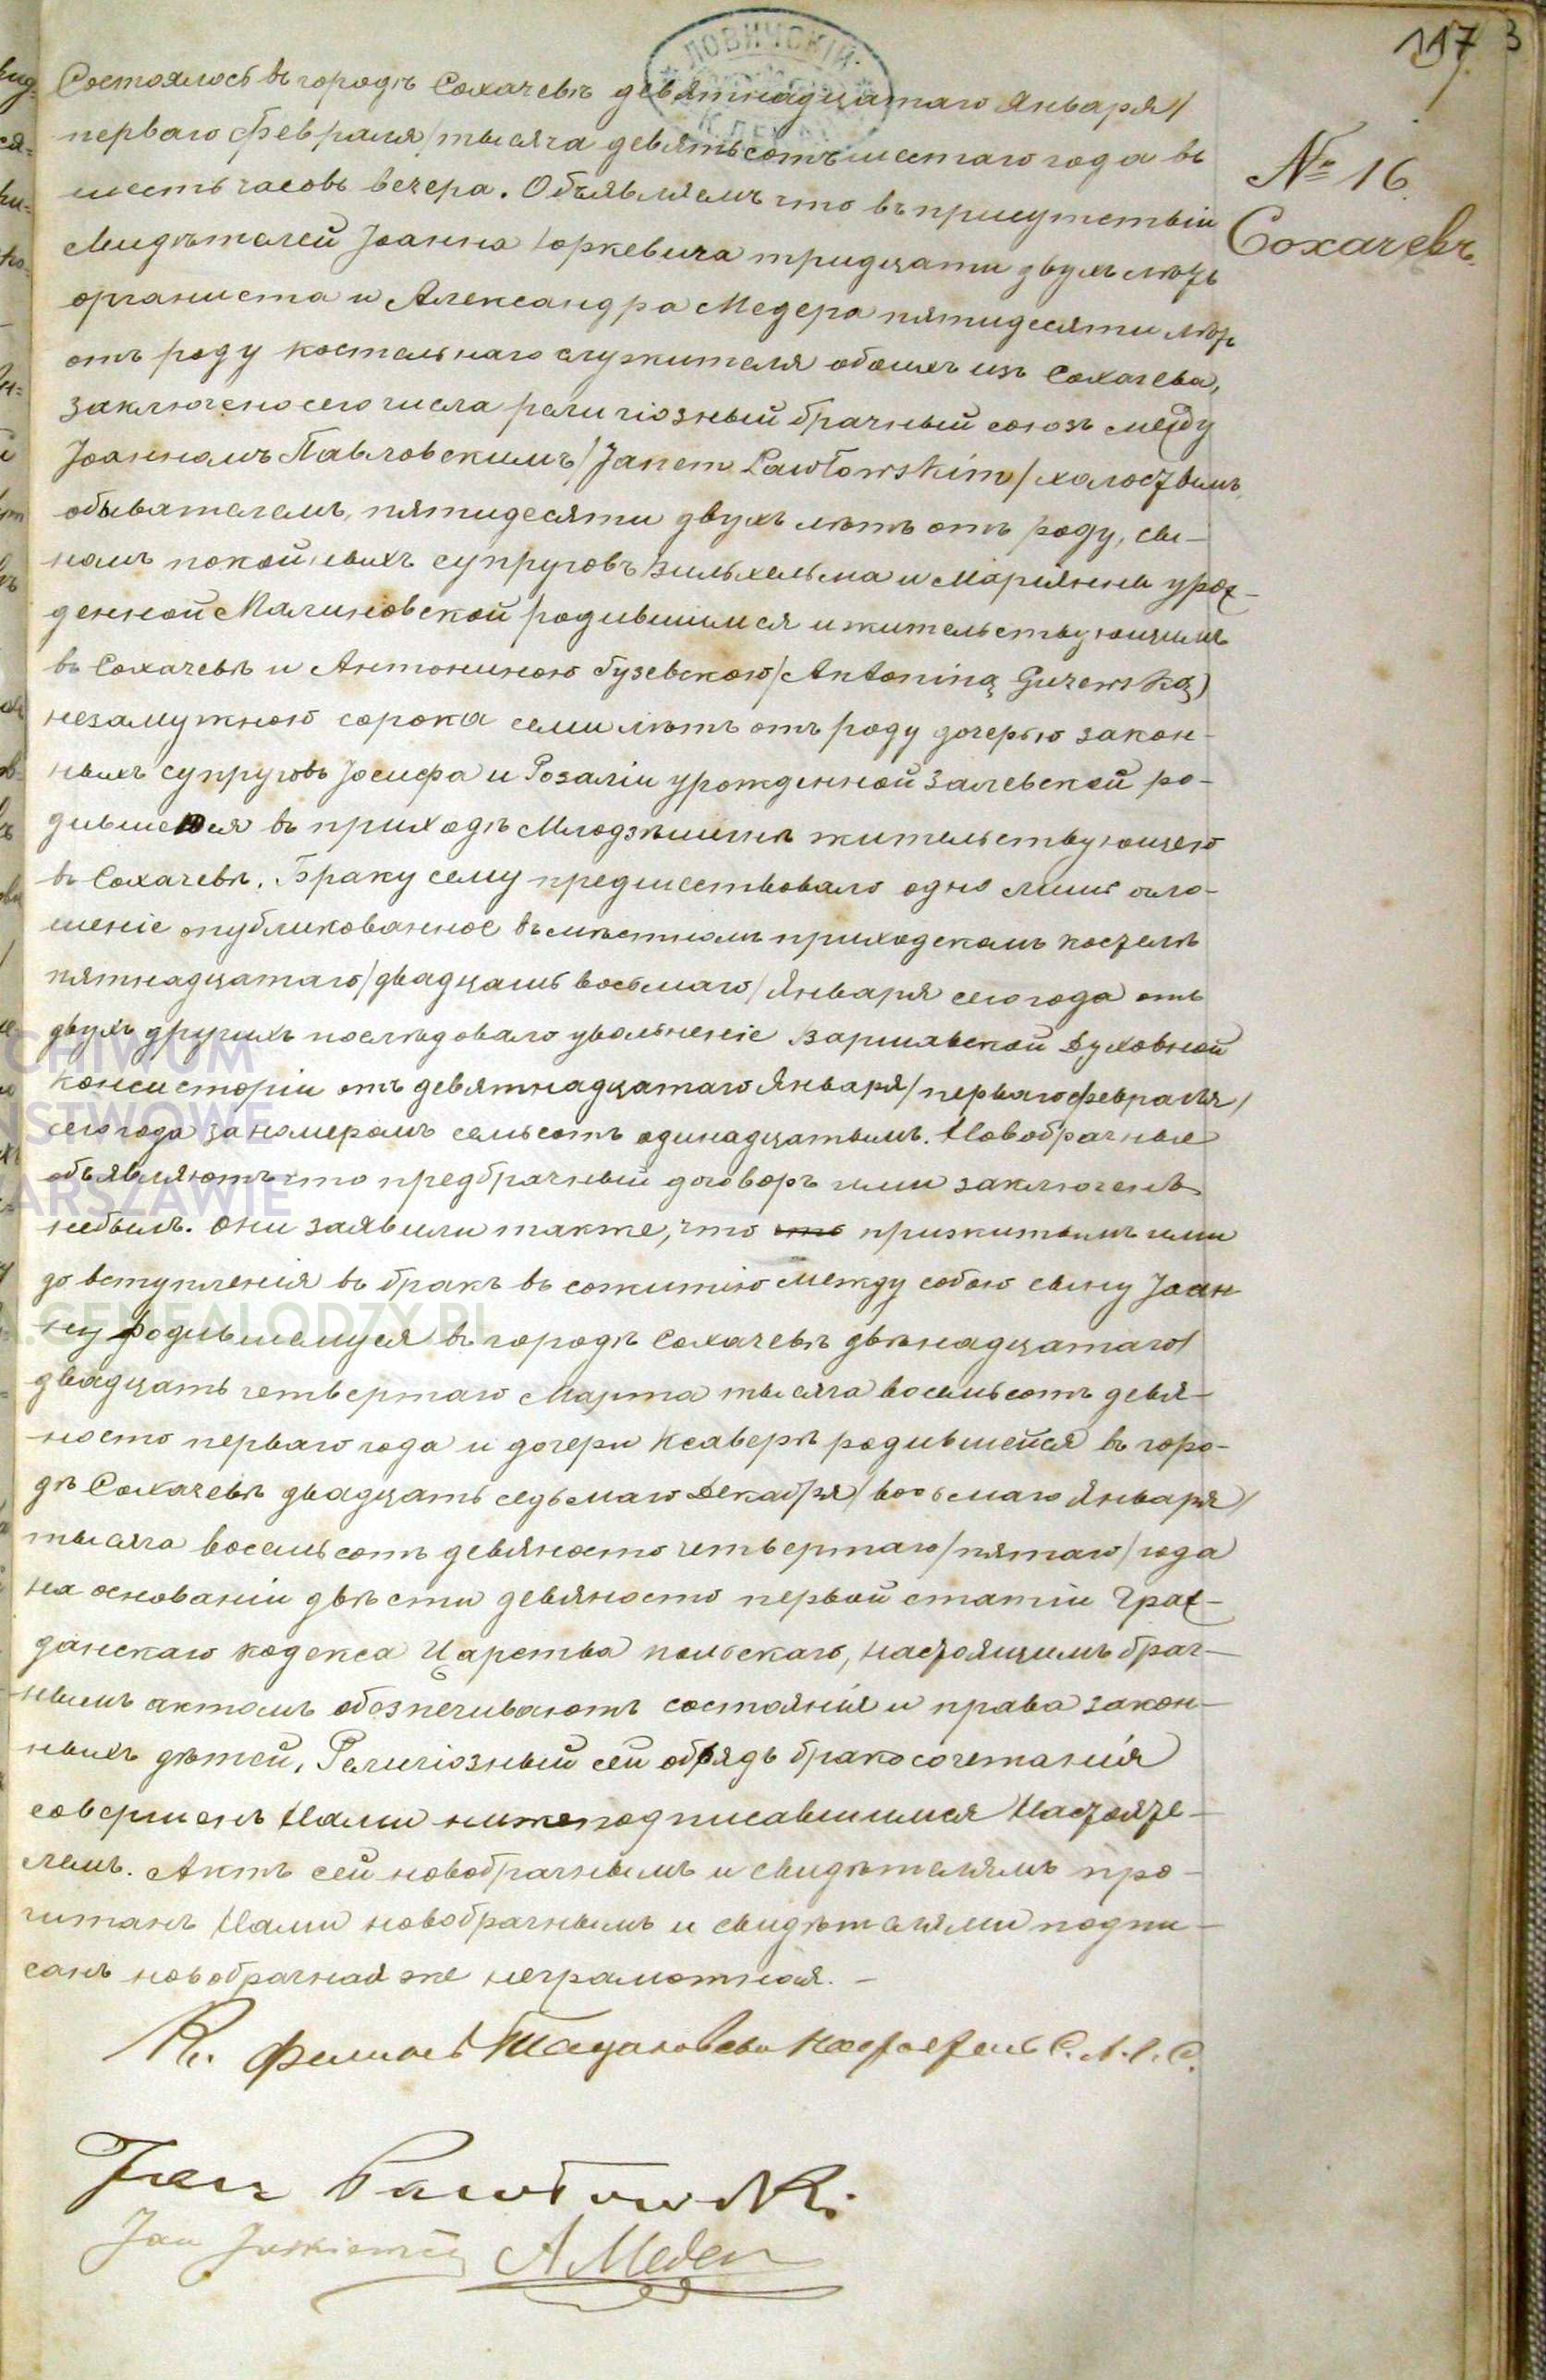 117 3
ЛОВИЧСКІЙ
№ 16
Сохачевъ
Состоялось въ городѣ Сохачевѣ девятнадцатаго Января/
перваго Февраля/тысяча девятьсотъ шестаго года въ
шесть часовъ вечера. Объявляемъ что въ присутствіи
свидѣтелей Іоанна Юркевича тридцати двухъ лѣтъ
органиста и Александра Медера пятидесяти лѣтъ
отъ роду костельнаго служителя обоихъ изъ Сохачева,
заключено сего числа религіозный брачный союзъ между
Іоанномъ Павловскимъ/Janem Pawłowskim/холостымъ,
обывателемъ, пятидесяти двухъ лѣтъ отъ роду, сы-
номъ покойныхъ супруговъ Вильхельма и Маріянны урож-
денной Малиновской родившимся и жительствующимъ
въ Сохачевѣ и Антониною Гузевскою/Antoniną Guzewską)
незамужною сорока семи лѣтъ отъ роду дочерью закон-
ныхъ супруговъ Іосифа и Розаліи урожденной Залевской ро-
дившеюся въ приходѣ Млодзѣшинѣ жительствующею
въ Сохачевѣ. Браку сему предшествовало одно лишь огло-
шеніе опубликованное въ мѣстномъ приходскомъ костелѣ
пятнадцатаго/двадцать восьмаго/Января сего года отъ
двухъ другихъ послѣдовало увольненіе Варшавской Духовной
Консисторіи отъ девятнадцатаго Января/перваго февраля/
сего года за номеромъ семьсотъ одинадцатымъ. Новобрачные
объявляютъ что предбрачный договоръ ими заключенъ
небылъ. Они заявили также, что что прижитымъ ими
до вступленія въ бракъ въ сожитію между собою сыну Іоан-
ну родившемуся въ городѣ Сохачевѣ двѣнадцатаго/
двадцать четвертаго Марта тысяча восемьсотъ девя-
носто перваго года и дочери Ксаверѣ родившейся въ горо-
дѣ Сохачевѣ двадцать седьмаго Декабря/восьмаго Января/
тысяча восемьсотъ девяносто четвертаго/пятаго/года
на основаніи двѣсти девяносто первой статіи Граж-
данскаго кодекса Царства польскаго, настоящимъ брач-
нымъ актомъ обозпечиваютъ состоянія и права закон-
ныхъ дѣтей. Религіозный сей обрядъ бракосочетанія
совершенъ Нами нижеподписавшимся Настояте-
лемъ. Актъ сей новобрачнымъ и свидѣтелямъ про-
читанъ Нами новобрачнымъ и свидѣтелями подпи-
санъ новобрачная же неграмотная. -
Настоятель
Jan Pawłowski
Jan Jurkiewicz A. Meder
ARCHIWUM
PAŃSTWOWE
WARSZAWIE
GENEALODZY.PL